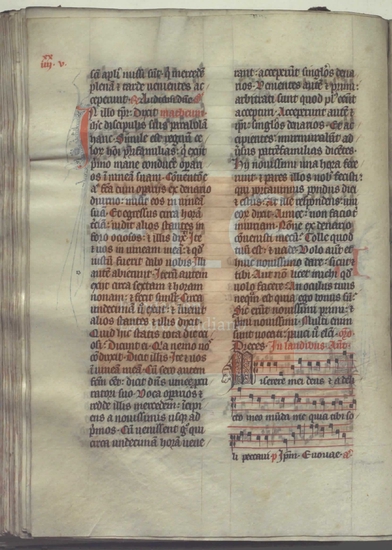 xx
iiii. v.
pleṅa & tarde venientes ac
ceperunt
N illo tp̄r: dixit matheum
ihc discipulis suis parabolā
hanc. Simile est regnum ce
lor hōi p̄rifamilias. q̄ exiit
primo mane conducē opari
os ī uineā suam. Conuentōe
aūt fc̄a cum opariis ex denario
diurno: misit eos in uineā
suā. Et egressus circa horā
terciā: uidit alios stantes in
foro ociosos: & illis dix̄. Ite
& uos in uineam meā: & qd̄
iustū fuerit dabo uobis. Illi
aute abierunt. Iterū autem
exiit circa sextam & horam
nonam: & fecit similit̄. Circa
undecimā u̅ exiit: & inuenit
alios stantes & illis dixit.
Quid hic statis tota die oci
osi: Dicunt ei. Quia nemo nos
cōduxit. Dicit illis. Ite & uos
ī uineā meā. Cū sero autem
factū eēt: dicit dn̄s uinee p̄cu
ratori suo. Voca oparios &
redde illis mercedem: incipi
ens a nouissimis usq̄ ad
p̄mos. Cū uenissent g̊ qui
circa undecimā horā uene
rant: acceperūt singlos dena
rios. Venientes aute & p̄mi:
arbitrati sunt quod pl' eent
acceptum. Acceperunt aute &
ip̄i: singlos denarios. Et ac
cipientes murmurabāt ad
uersus patremfamilias dicētes.
Hij nouissimi una hora fece
runt: & pares illos nob̄ fecisti:
qui portauimus pondus diei
& estus. At ille respondens uni
eor dixit. Amice: non facio t̄
iniuriam. Nōne ex denario
conuenisti mecū? Tolle quod
tuū est: & uade. Volo aūt &
huic nouissimo dare: sicut &
tibi. Aut nō licet michi qd̄
uolo facere? An oculus tuus
neq̄m est quia ego bonus sū?
Sic erūt nouissimi primi: &
p̄mi nouissimi. Multi enim
sunt uocati: pauci ū elc̄i.
In laudibus. Ant.
Miserere mei deus & a deli
cto meo mūda me quia tibi so
li peccaui. p̄ Ip̄m. Euouae.